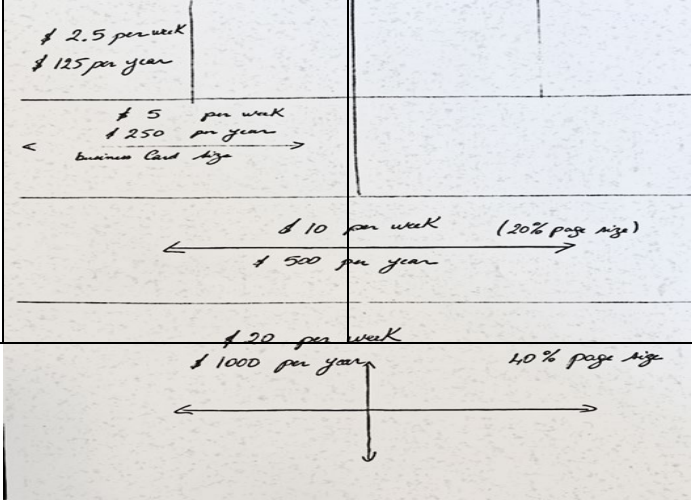 $ 2.5 per week
$ 125 per year
$ 5 per week
$ 250 per year
business Card size
$ 10 per week (20% page size)
$ 500 per year
$ 20 per week
$ 1000 per year 40% page size